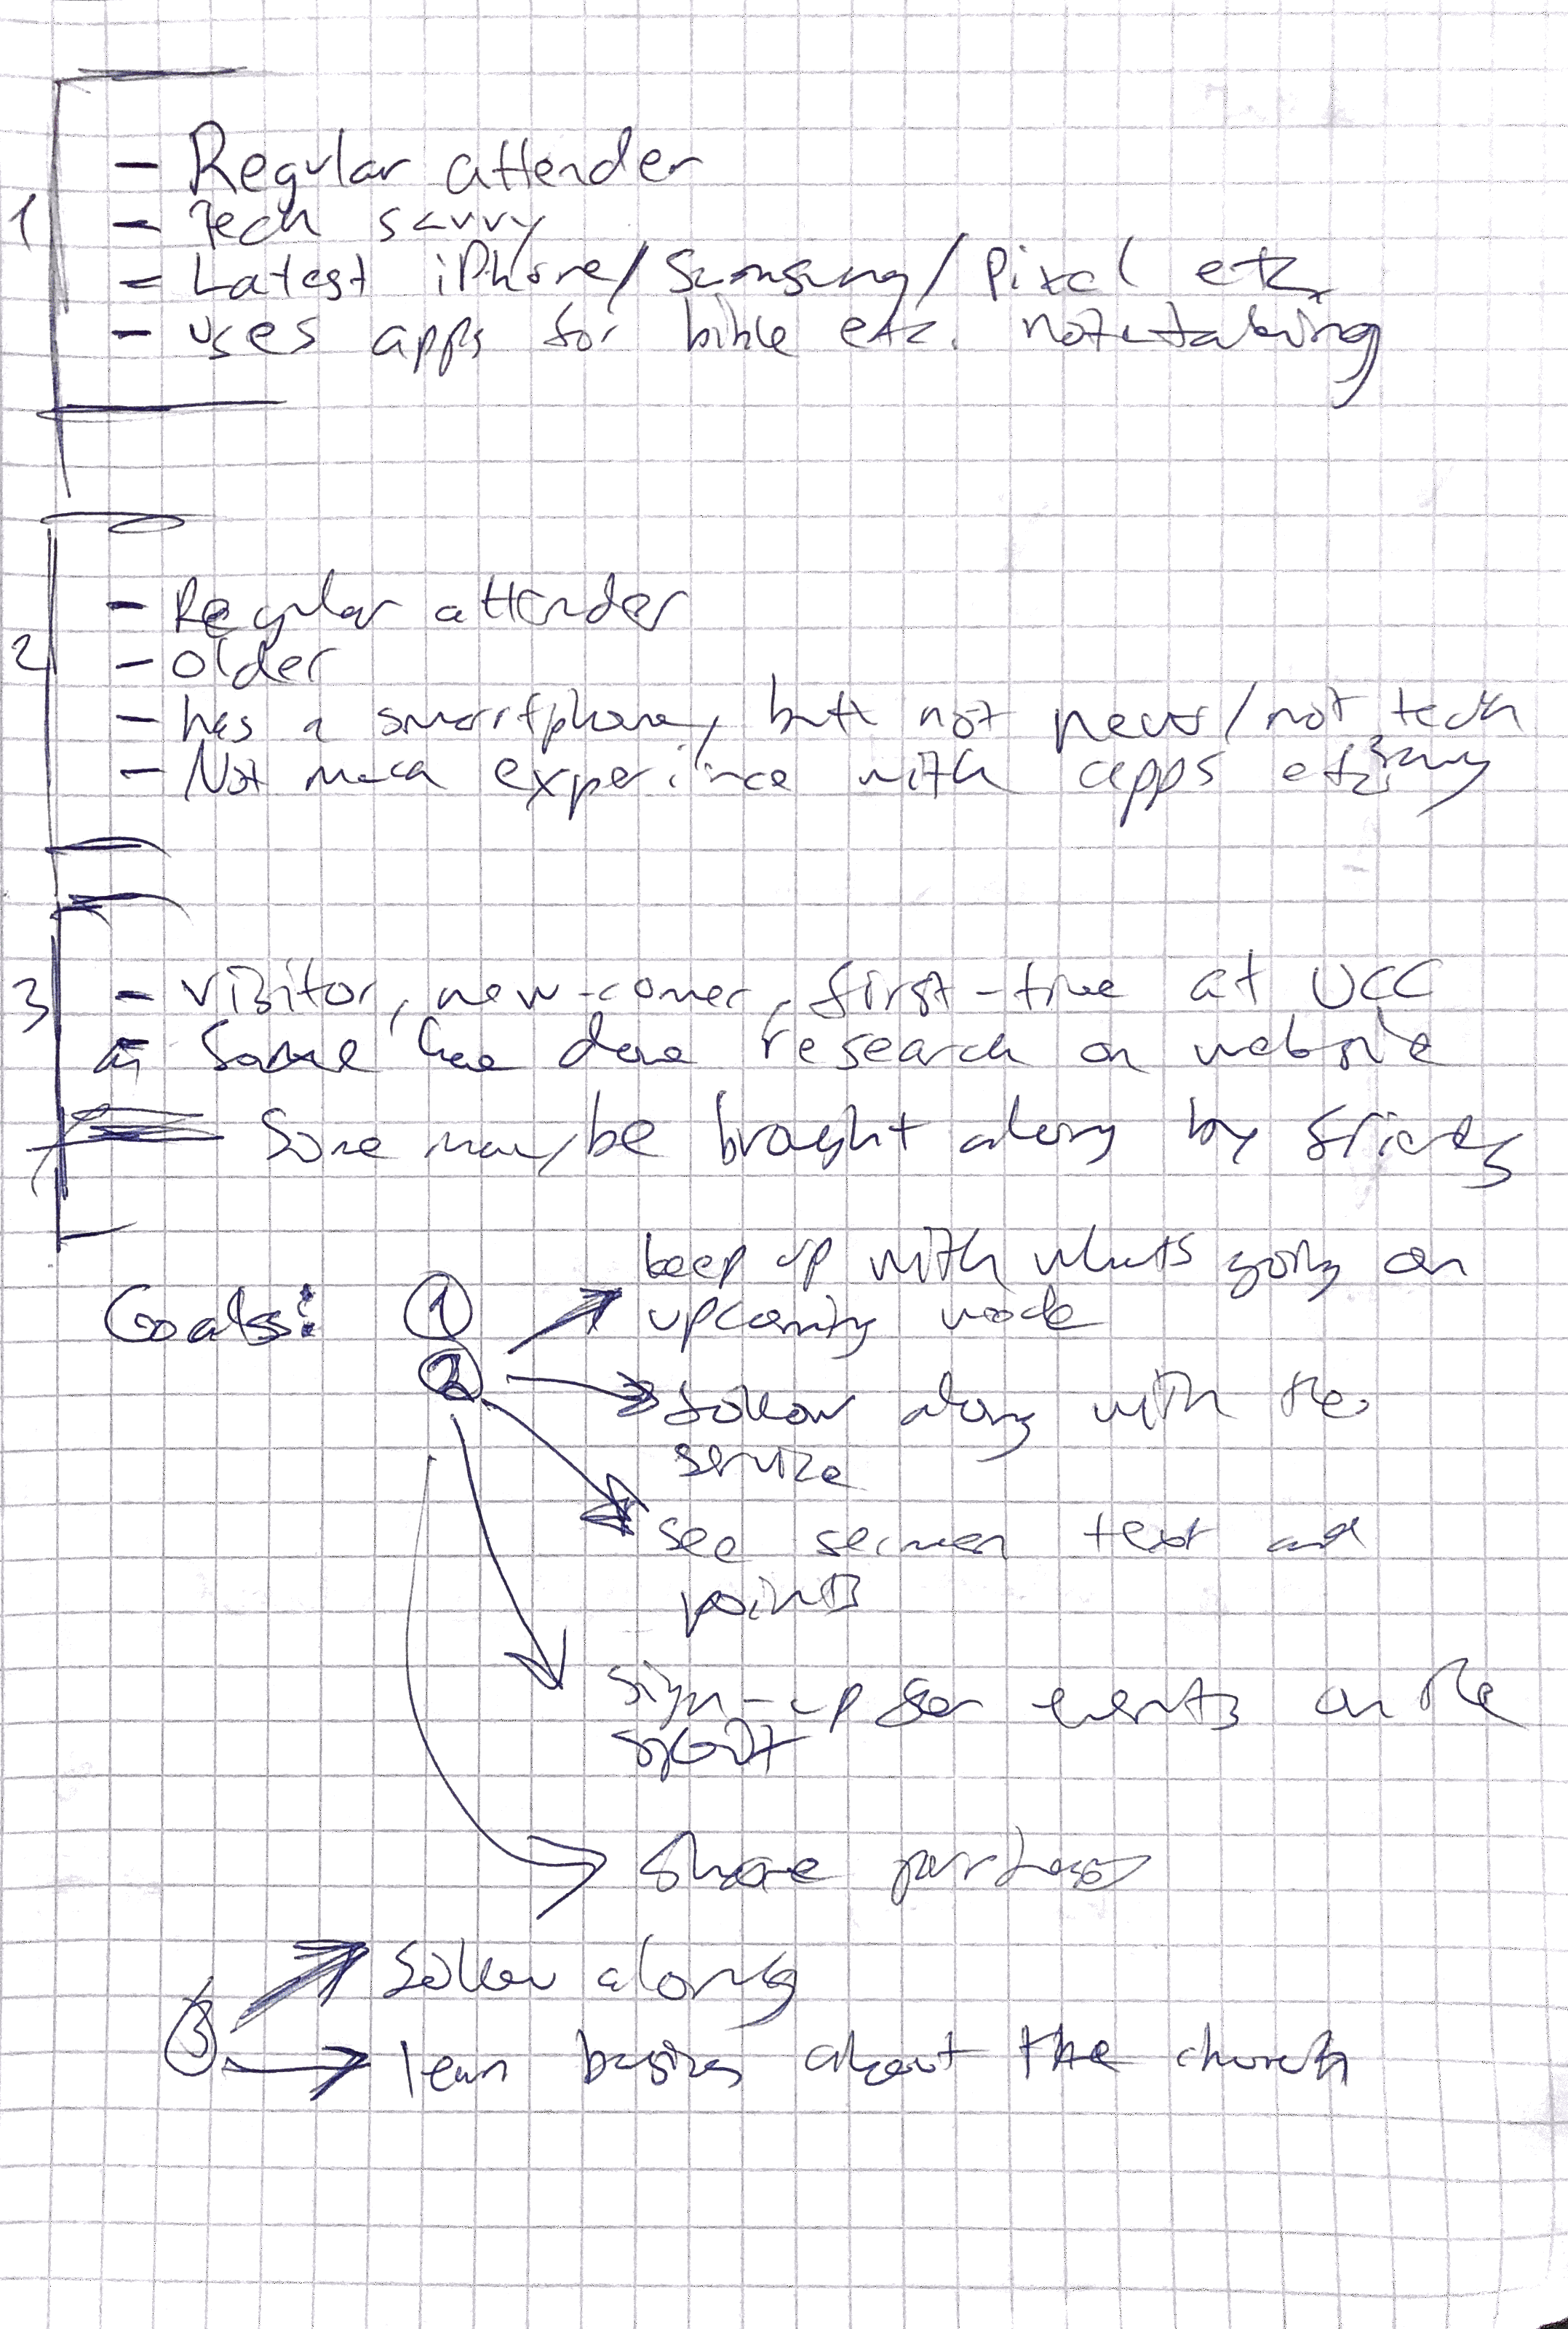 1
- Regular attender
- Tech savvy
- Latest iPhone/Samsung/Pixel etc
- uses apps for bible etc. notetaking
2
- Regular attender
- older
- has a smartphone, but not newest/not tech savvy
- Not much experience with apps etc.
3
- visitor, new-comer, first-time at UCC
- Some have done research on website
Some may be brought along by friends
Goals: 1
2
keep up with whats going on
upcoming week
follow along with the
service
see sermon text and
points
sign-up for events on the
spot
share
3
follow along
learn basics about the church